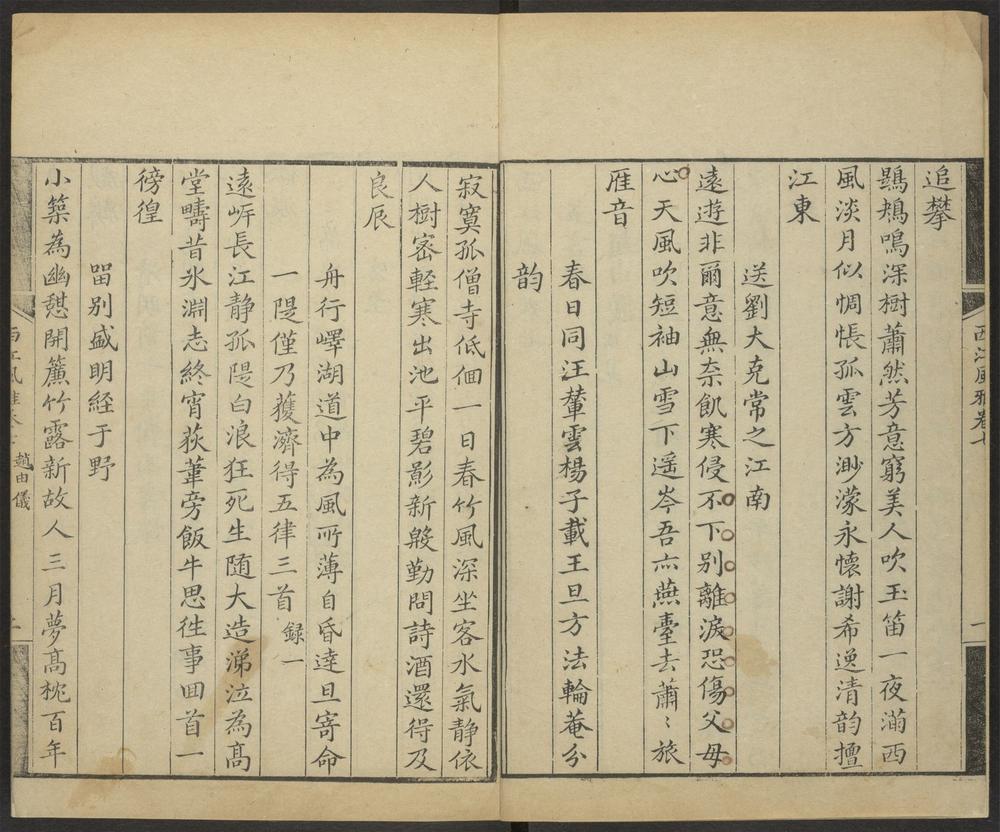 追攀
鶗鴂鳴深樹蕭然芳意窮美人吹玉笛一夜滿西
風淡月似惆悵孤雲方渺濛永懷謝希逸清韵擅
江東
送劉大克常之江南
遠遊非爾意無奈飢寒侵不下別離淚恐傷父母
心天風吹短袖山雪下遥岑吾亦燕臺去蕭〻旅
雁音
春日同汪輦雲楊子載王旦方法輪菴分
韵
西江風雅卷七
一
寂寞孤僧寺低佪一日春竹風深坐客水氣静依
人樹密軽寒出池平碧影新殷勤問詩酒還得及
良辰
舟行嶧湖道中為風所薄自昏達旦寄命
一隄僅乃獲濟得五律三首 録一
遠㟁長江静孤隄白浪狂死生随大造涕泣為髙
堂疇昔氷淵志終宵荻葦旁飯牛思徃事囬首一
徬徨
畱别盛明経于野
小築為幽憇開簾竹露新故人三月夢髙枕百年
趙由儀